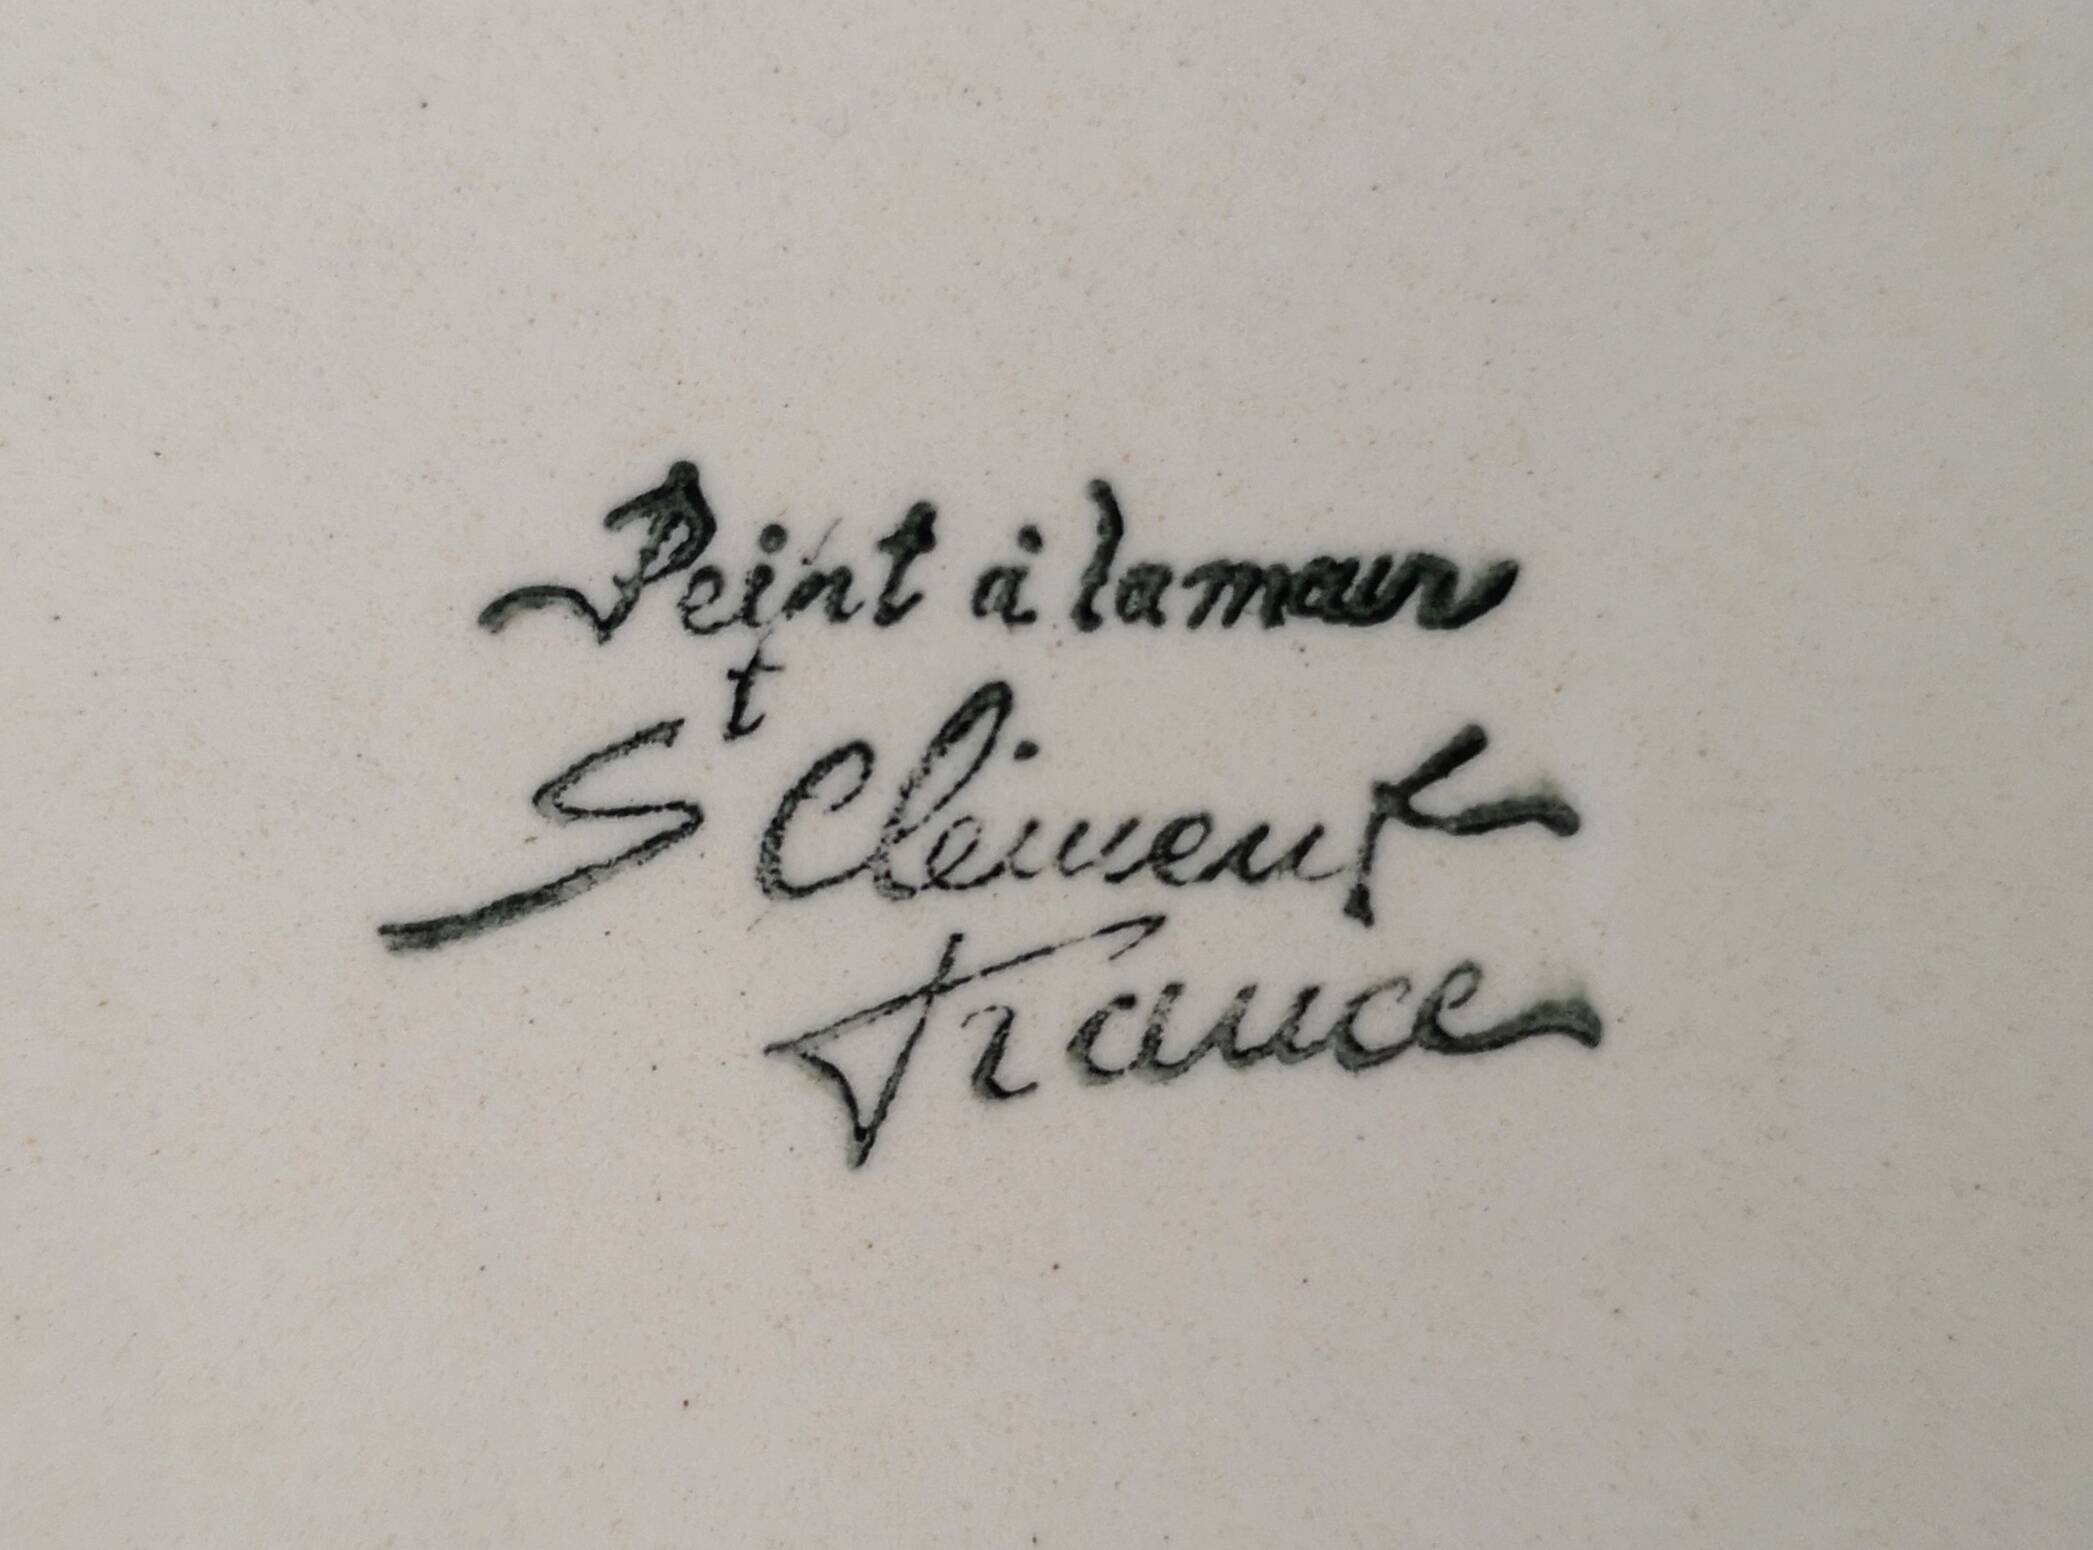 Peint à la main
St Clément
France